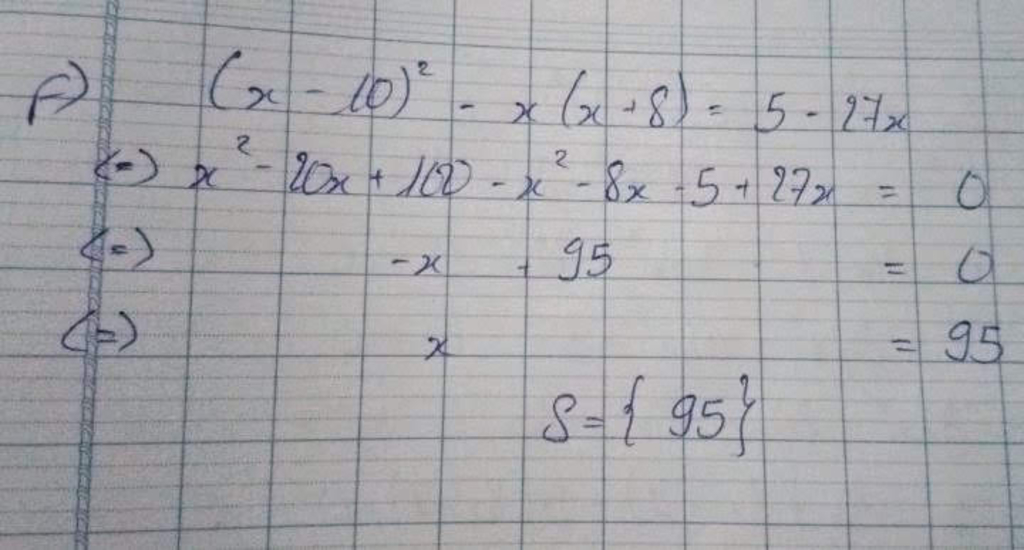 f) (x - 10)² - x (x + 8) = 5 - 27x
(=) x² - 20x + 100 - x² - 8x - 5 + 27x = 0
(=) -x + 95 = 0
(=) x = 95
S = { 95 }